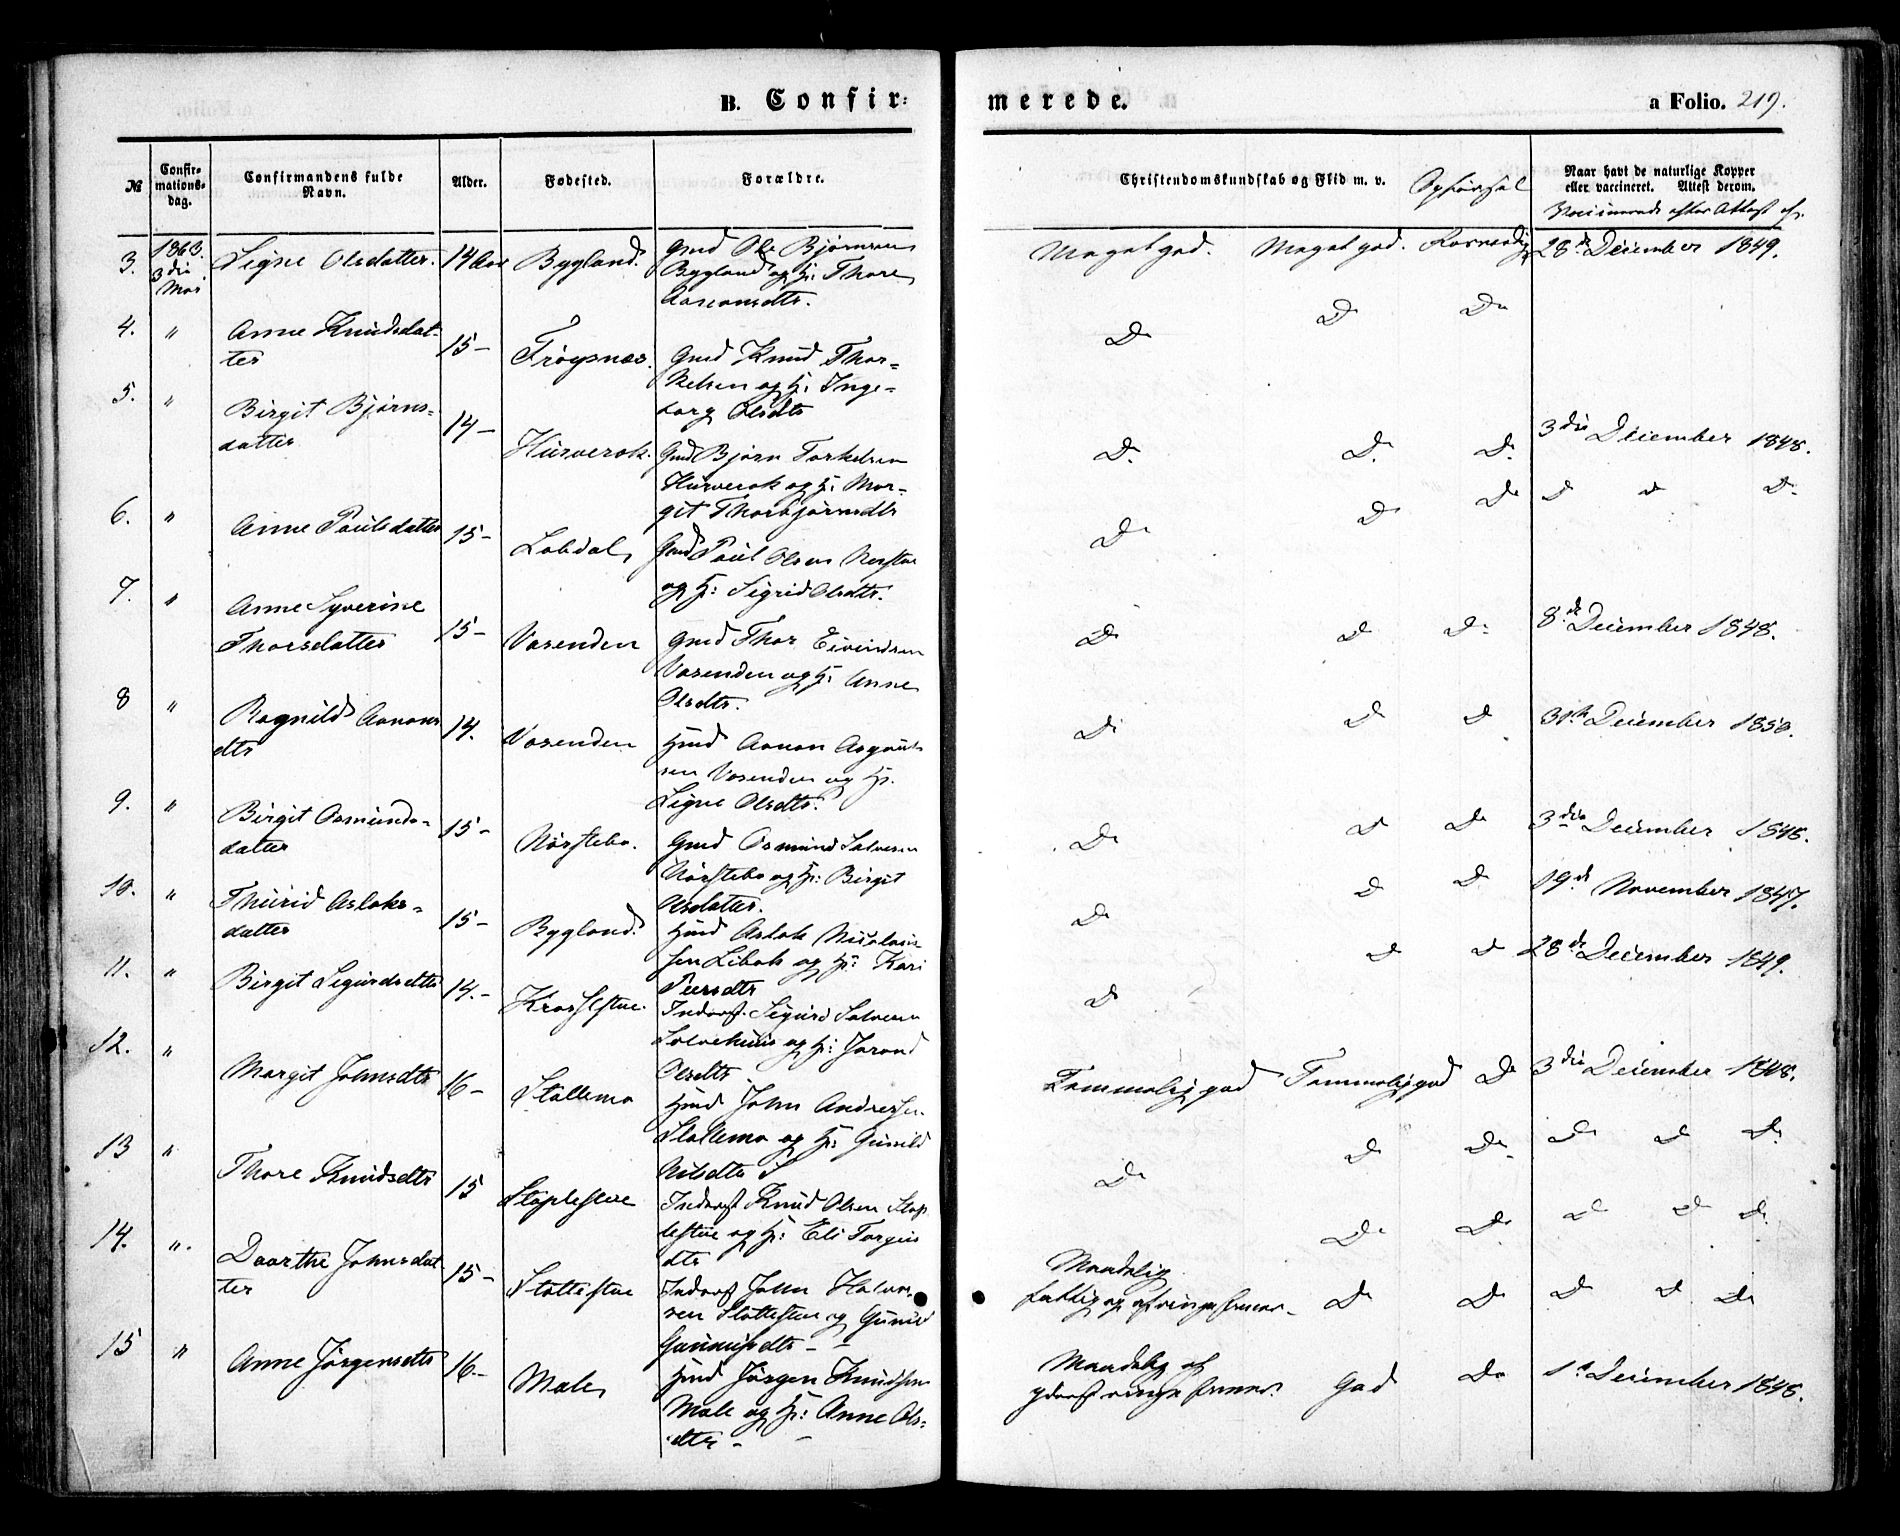 B. Confir-
merede.
a Folio. 219.
№
Confir-
mations-
dag.
Confirmandens fulde
Navn.
Alder.
Fødested.
Forældre.
Christendomskundskab og Flid m. v.
Opførsel
Naar havt de naturlige Kopper
eller vaccineret. Attest derom.
Vaccinerede efter Attest af:
3.
1863.
3die
Mai
Signe Olsdatter.
14 Aar
Bygland.
Gmd Ole Bjørnsen
Bygland og H: Thore
Aanonsdtr.
Meget god. Meget god. Rosværdig
28de December 1849.
4.
"
Anne Knudsdat-
ter
15-
Frøysnæs.
Gmd Knud Thor-
kelsen og H: Inge-
borg Olsdtr
Do Do Do
5.
"
Birgit Bjørns-
datter
14-
Hurverak.
Gmd Bjørn Torkelsen
Hurverak og H: Mar-
git Thorbjørnsdtr
Do. Do. Do.
3die December 1848.
6.
"
Anne Paulsdatter
15-
Lobdal
Gmd Paul Olsen Nerstue
og H: Sigrid Olsdtr.
Do Do Do
Do Do Do
7.
"
Anne Syverine
Thorsdatter
15-
Vasenden
Gmd Thor Eivindsen
Vasenden og H: Anne
Olsdtr.
Do Do Do
8de December 1848.
8
"
Ragnild Aanons
dtr
14.
Vasenden
Hmd Aanon Asgaut
sen Vasenden og H:
Signe Olsdtr.
Do Do Do
31te December 1850.
9.
"
Birgit Osmunds-
datter
15-
Nørstebø.
Gmd Osmund Salvesen
Nørstebø og H: Birgit
Olsdatter.
Do Do Do
3die December 1848.
10.
"
Thurid Aslaks-
datter
15-
Bygland.
Hmd Aslak Nicolais
sen Libak og H: Kari
Peersdtr
Do Do Do
19de November 1847.
11.
"
Birgit Sigurdsdtr
14.-
Kroslstue.
Inderst Sigurd Salvesen
Solvehuus og H: Jorand
Olsdtr
Do Do Do
28de December 1849.
12.
"
Margit Johnsdtr
16-
Stallemo
Hmd John Andersen
Stallemo og H: Gunild
Nilsdtr
Temmelig god Temmelig god Do
3die December 1848.
13
"
Thore Knudsdtr
15
Støplestue
Inderst Knud Olsen Støp
lestue og H: Eli Torgius
dtr
Do Do Do.
Do Do Do
14.
"
Dorthe Johnsdat
ter
15-
Støttestue
Inderst John Halvor
sen Støttestue og Gunild
Gunnufsdtr -
Maadelig
fattig og af ringe Evner.
Do Do
Do Do Do
Do Do Do
15
"
Anne Jørgensdtr
16.-
Male
Hmd Jørgen Knudsen
Male og H: Anne Ols-
dtr -
Maadelig af
yderst ringe Evner.
God
Do
1ste December 1848.